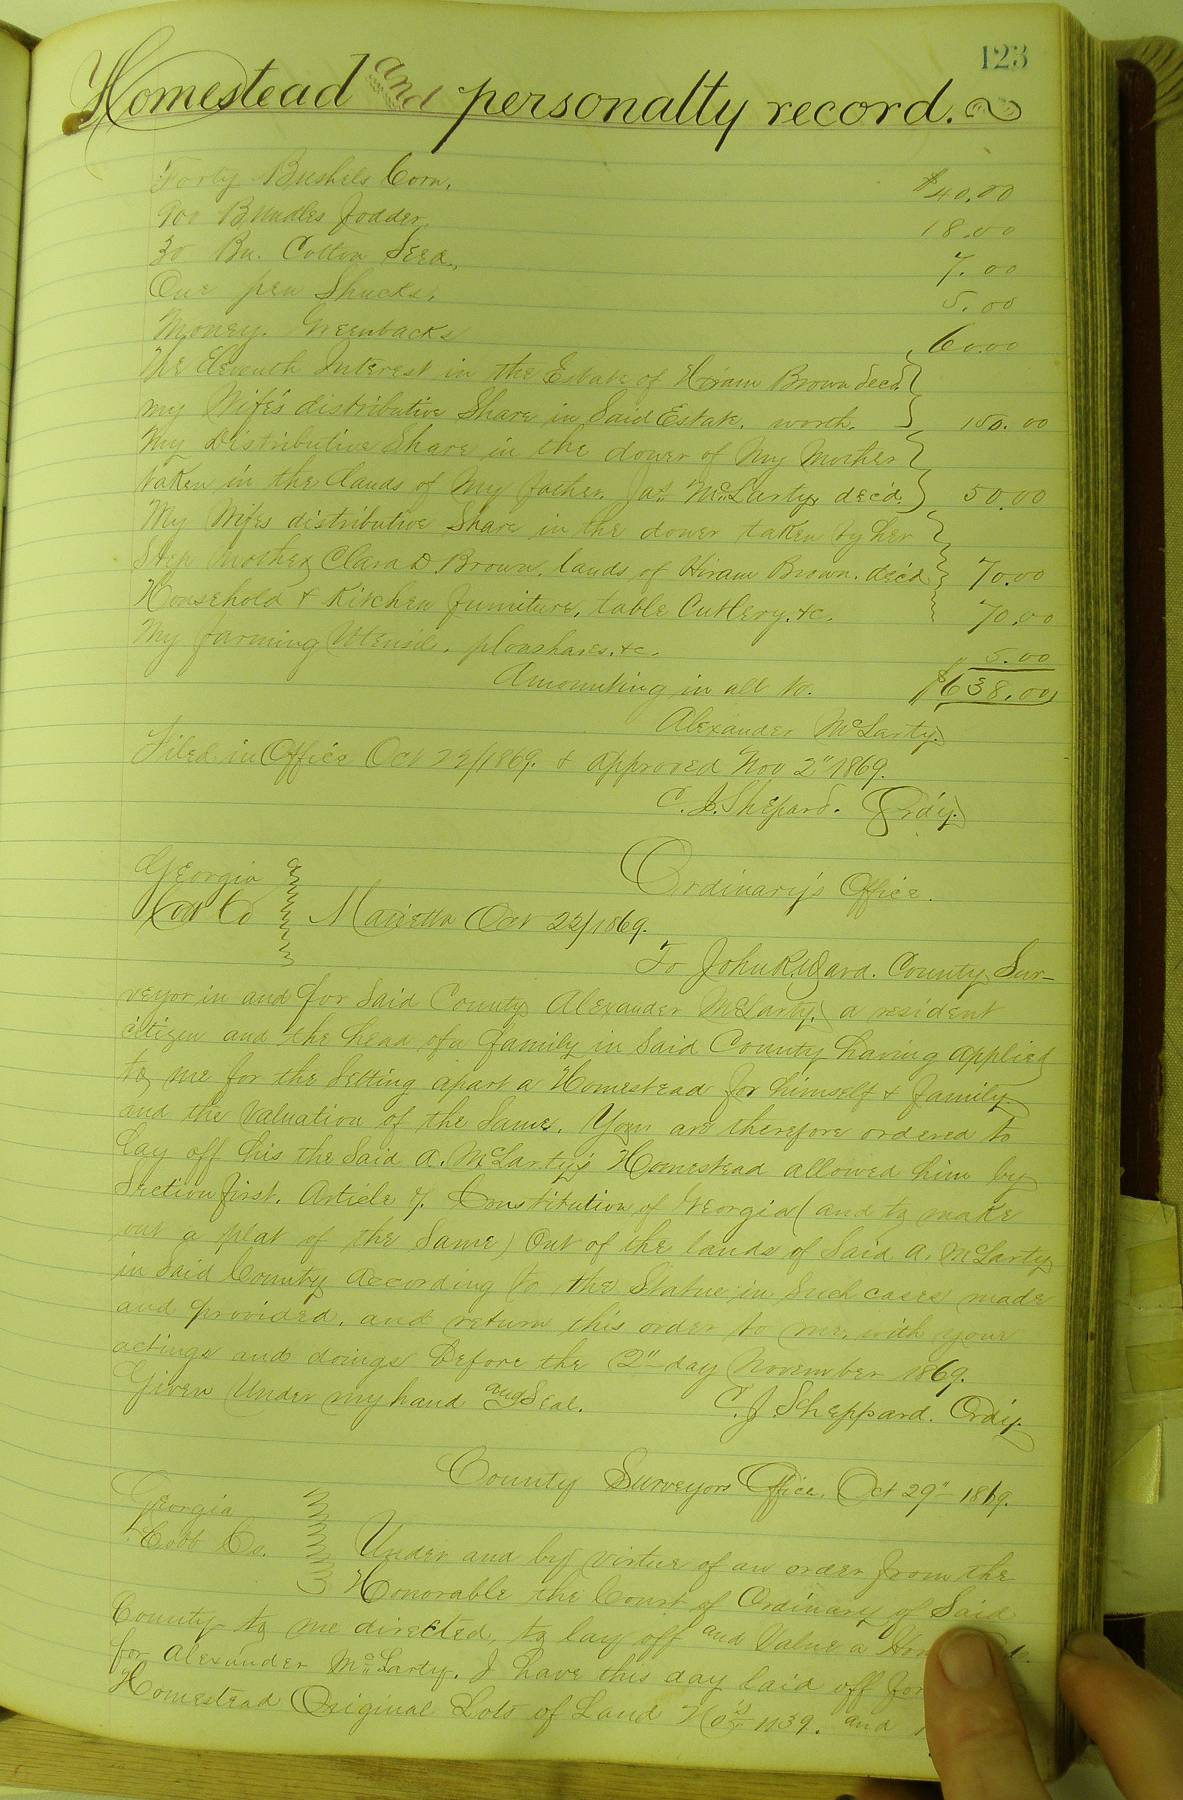 123
Homestead and personalty record.
Forty Bushels Corn, $40.00
900 Bundles Fodder, 18.00
30 Bu. Cotton Seed, 7.00
One pen Shucks, 5.00
Money. Greenbacks 60.00
The Eleventh Interest in the Estate of Hiram Brown decd.
my Wife's distributive Share in Said Estate, worth, 150.00
My Distributive Share in the dower of My Mother
taken in the lands of My father Jas. McLarty, dec'd. 50.00
My Wifes distributive Share in the dower taken by her
Step Mother, Clara D. Brown, lands of Hiram Brown, dec'd 70.00
Household & Kitchen furniture, table Cutlery, &c. 70.00
My farming Utensils, plowshares, &c. 5.00
Amounting in all to. $638.00
Alexander McLarty.
Filed in Office Oct 22/1869. & approved Nov 2" 1869.
C. J. Shepard. Ordy.
Georgia Ordinary's Office.
Cobb Co Marietta Oct 22/1869.
To John R Ward. County Sur-
veyor in and for Said County Alexander McLarty, a resident
citizen and the head of a family in said County having applied
to me for the Setting apart a Homestead for himself & family
and the Valuation of the Same. You are therefore ordered to
Lay off his the Said A. McLarty's Homestead allowed him by
Section first. Article 7. Constitution of Georgia (and to make
out a plat of the Same) Out of the lands of Said A. McLarty
in Said County According to the Statue in Such cases made
and provided, and return this order to me, with your
actings and doings before the 2" day November 1869.
Given Under my hand and Seal. C. J. Sheppard. Ordy.
County Surveyors Office. Oct 29" 1869.
Georgia
Cobb Co. Under and by virtue of an order from the
Honorable the Court of Ordinary of Said
County to me directed, to lay off and Value a
for Alexander McLarty. I have this day laid off for
Homestead Original Lots of Land Nos 1139. and